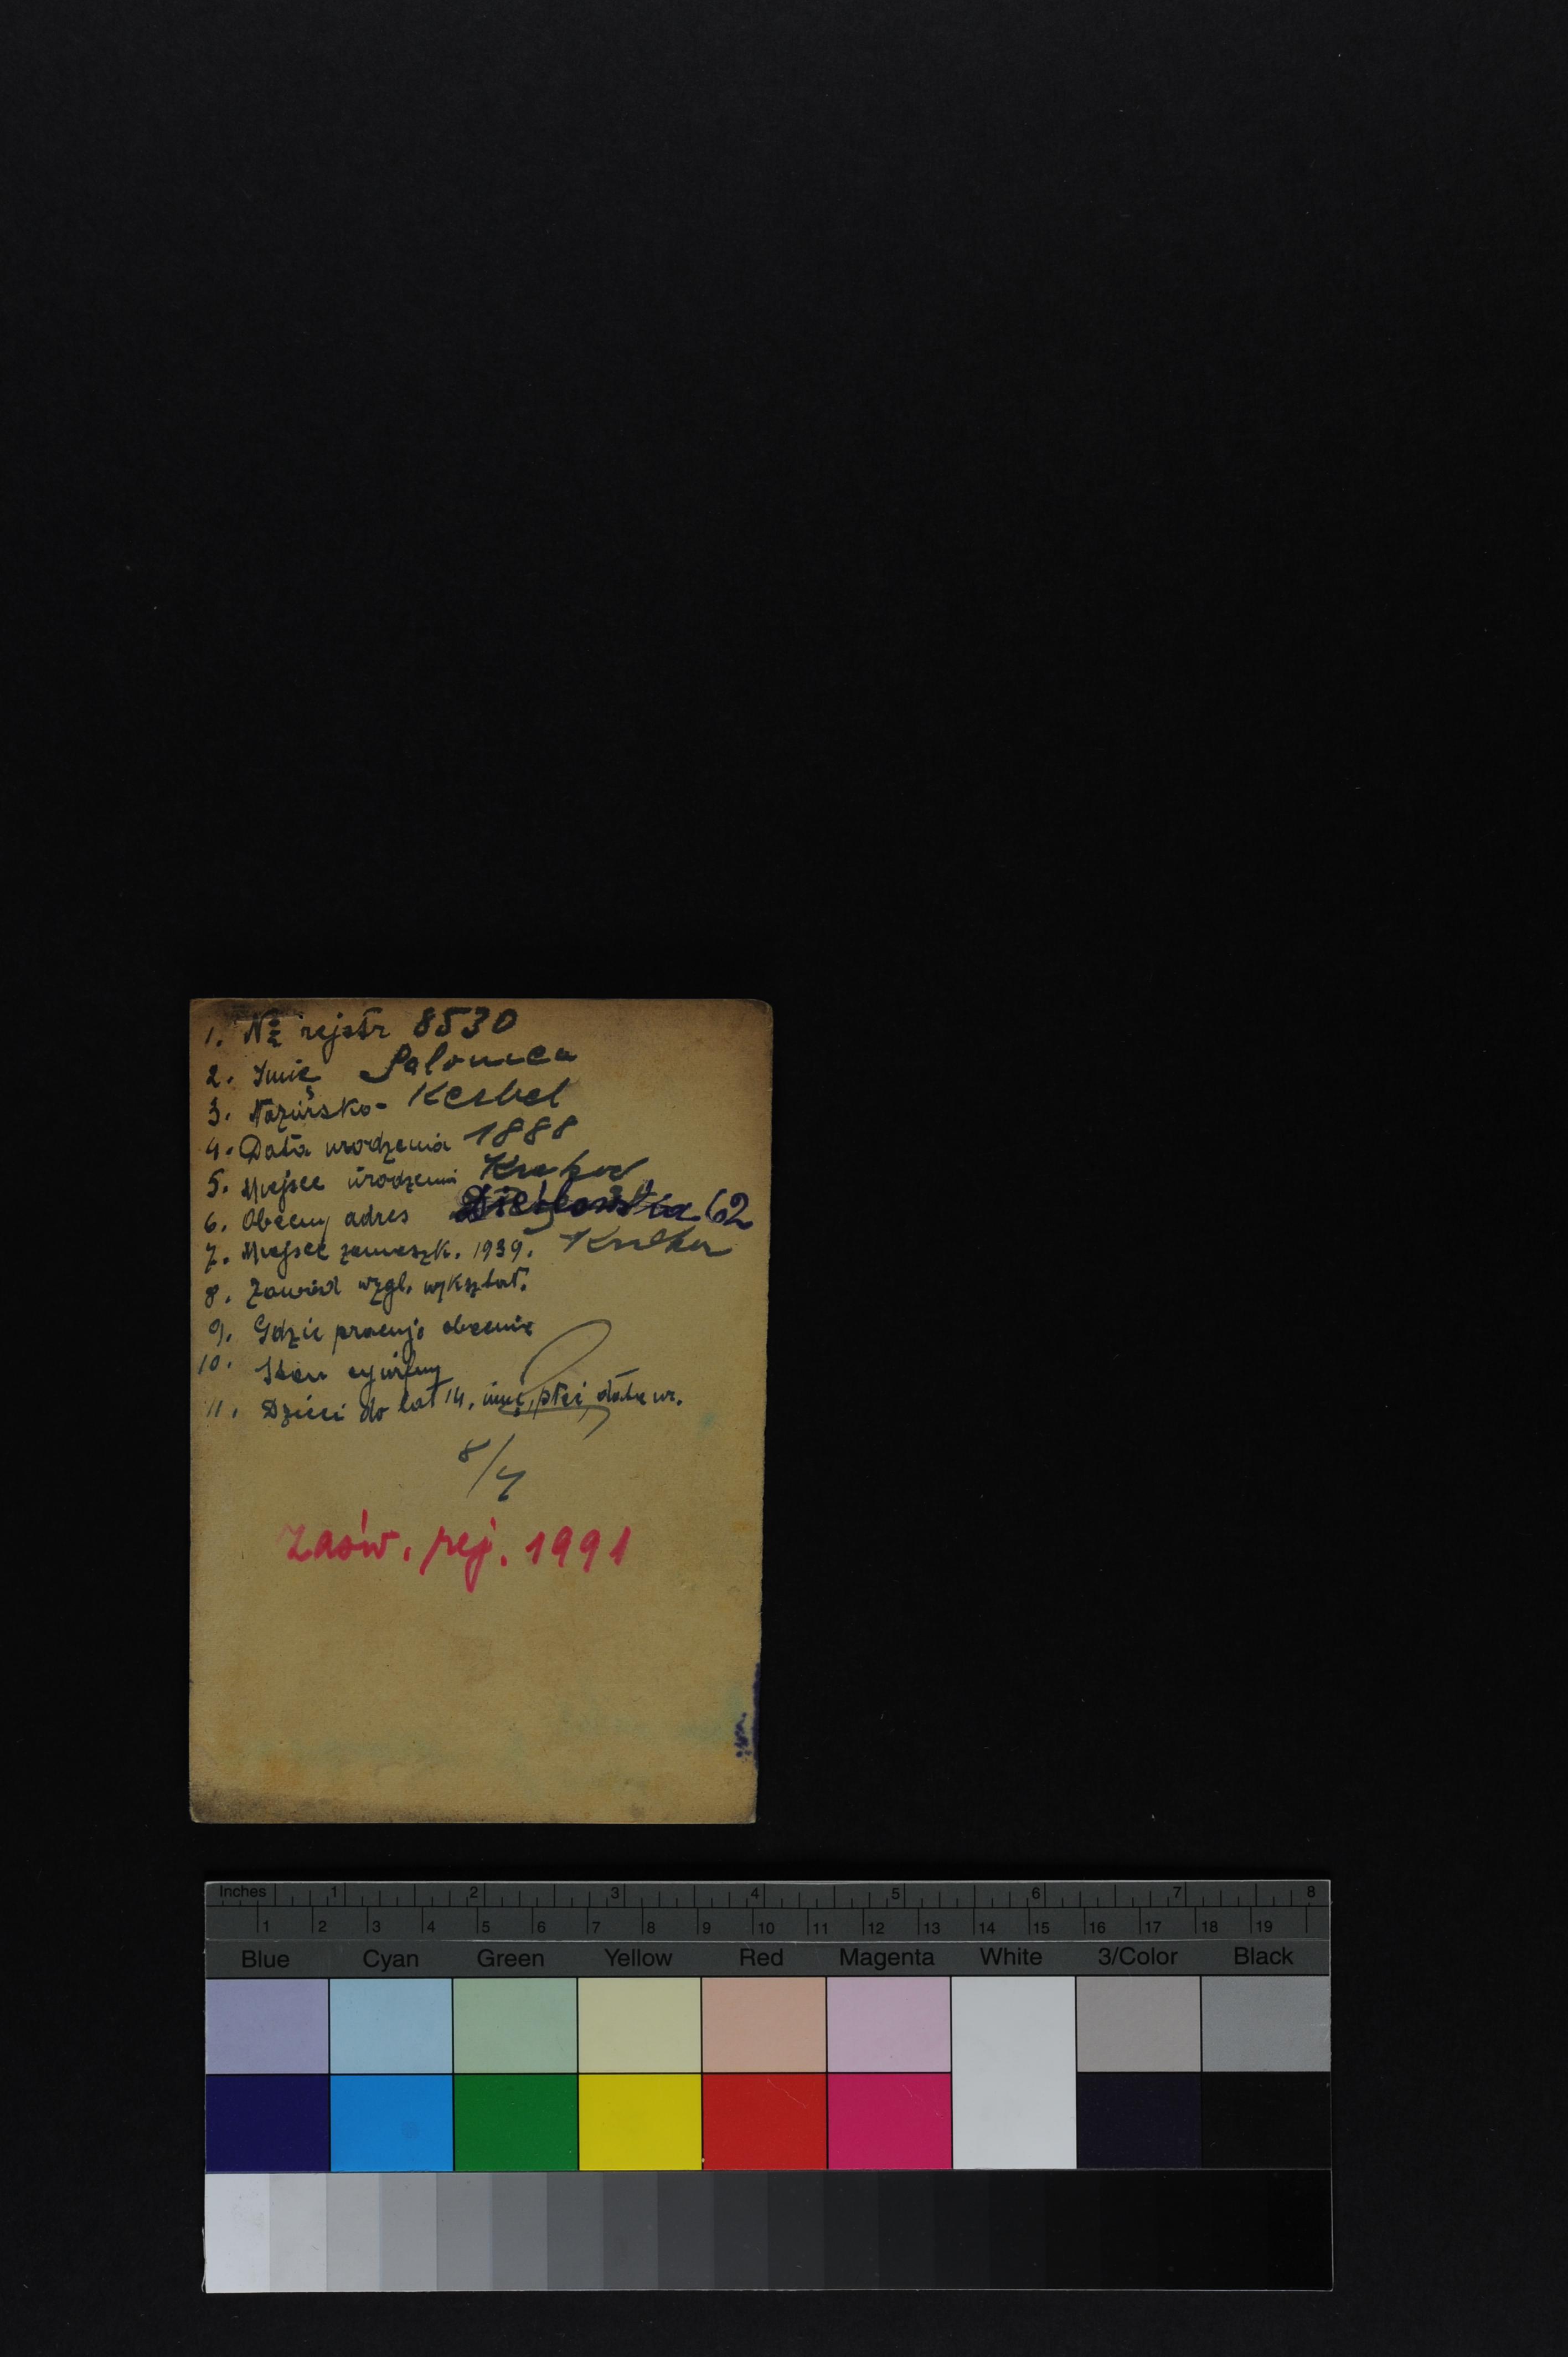 1. № rejestr 8530
2. Imię Salomea
3. Nazwisko - Kerbel
4. Data urodzenia 1888
5. Miejsce urodzenia Kraków
6. Obecny adres 62
7. Miejsce zamieszk. 1939. Kraków
8. Zawód wzgl. wykształ.
9. Gdzie pracuje obecnie
10. Stan cywilny
11. Dzieci do lat 14, imię, płeć, data ur.
8/4
Zaśw. rej. 1991
Inches 1 2 3 4 5 6 7 8
1 2 3 4 5 6 7 8 9 10 11 12 13 14 15 16 17 18 19
Blue Cyan Green Yellow Red Magenta White 3/Color Black